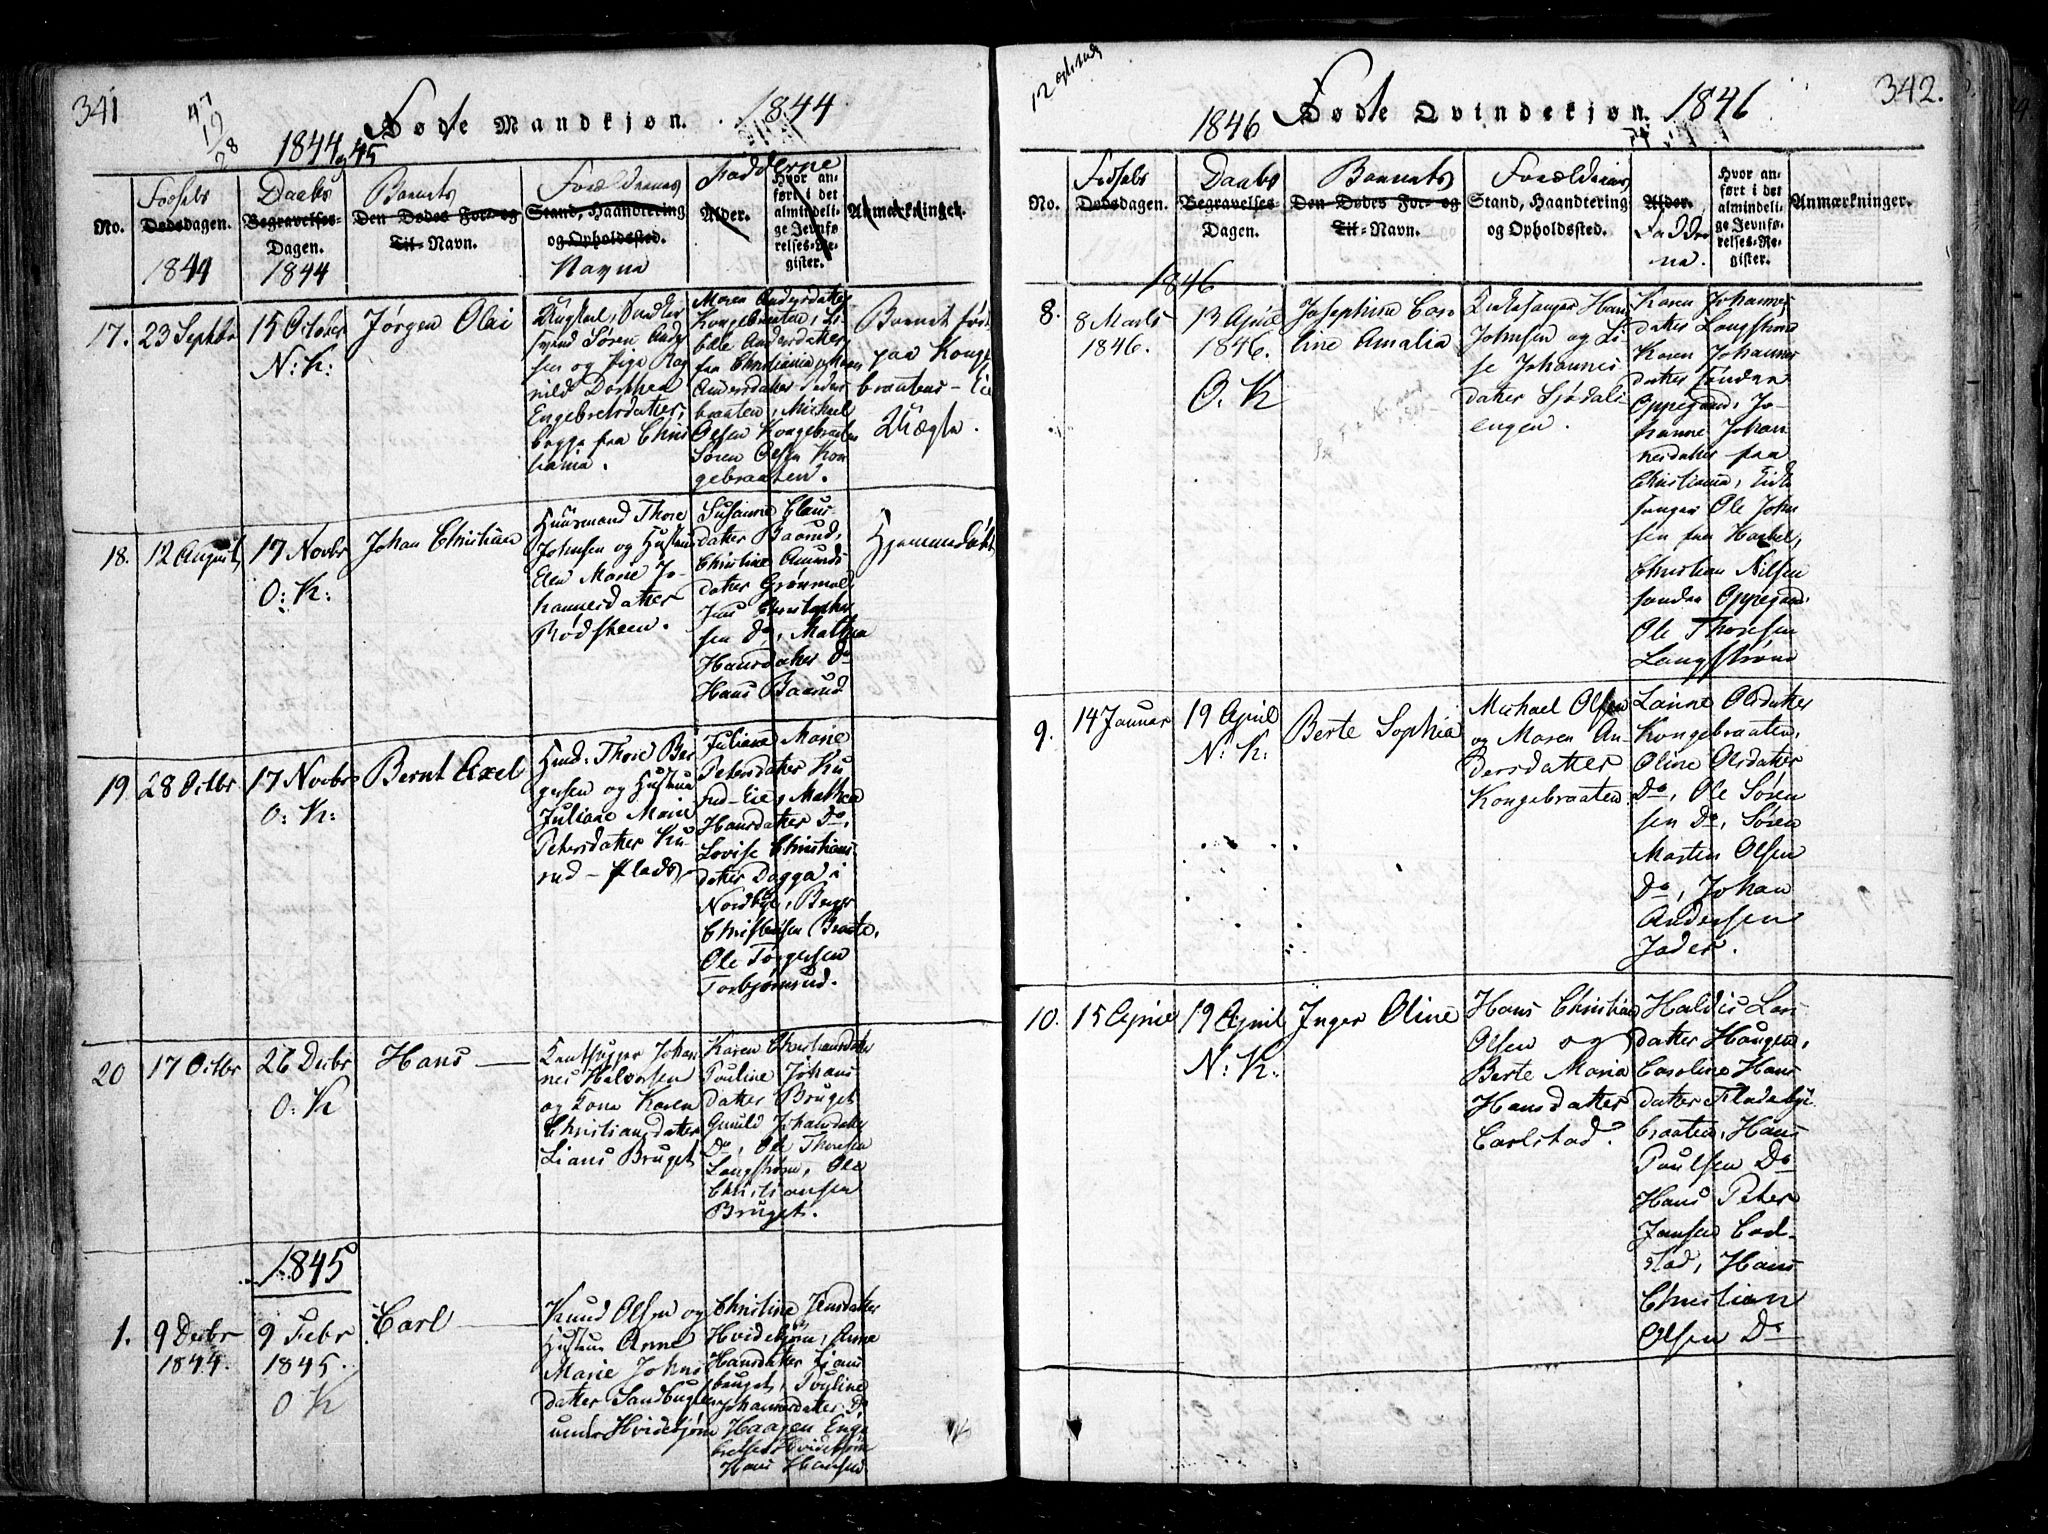 341
47
19
28
1844 og 45
Føde Mandkjøn.
1844
No.
Fødsels
Dødsdagen.
1844
Daabs
Begravelses-
Dagen.
1844
Barnets
Den Dødes For- og
Til- Navn.
Forældrenes
Stand, Haandtering
og Opholdssted.
Navne
Fadderne
Alder.
Hvor an-
ført i det
almindeli-
ge Jevnfø-
relses-Re-
gister.
Anmærkninger.
17.
23 Septbr
15 October
N: K:
Jørgen Olai
Ungkarl,
svend Søren Andr
sen og Pige Rag
nild Dorthea
Engebretsdatter,
begge fra Chris
tiania.
Maren Andersdatter
Kongebraaten,
Andersdatter
fra Christiania,
Andersdatter
braaten, Michael
Olsen Kongebraaten
Søren Olsen Kon
gebraaten.
Barnet født
paa Konge
braatens Eie
Uægte.
18.
12 August
17 Novbr
O: K:
Johan Christian
Huusmand Thore
Johnsen og Hustrue
Elen Marie Jo-
hannesdatter
Rødsteen.
Susanne Claus
datter Baarud,
Christine Amunds
datter Grønmol
Jens Christopher
sen Do, Mathea
Hansdatter Do
Hans Baarud
Hjemmedøbt
19
28 Octbr
17 Novbr
O: K:
Bernt Axel
Husmd. Thore Ber
gersen og Hustrue
Juliane Marie
Petersdatter Ku
rud-plads
Juliane Marie
Petersdatter Ku
rud-Eie, Mathea
Hansdatter Do,
Lovise Christians
datter Dagga i
Nordbye, Berger
Christensen Braate,
Ole Torgersen
Torbjørnrud.
20
17 Octbr
26 Decbr
O: K
Hans
Landhugger Johan
nes Halvorsen
og Kone Karen
Christiansdatter
Lians Bruget
Karen Christiansdatter
Pauline Johans
datter Bruget
Gunild Johansdatter
Do, Ole Thoresen
Langstrøm, Ole
Christiansen
Bruget.
1845
1.
9 Decbr
1844.
9 Febr
1845.
O K
Carl
Knud Olsen og
Hustrue Anne
Marie Johns
datter Sandbugten
under Hvidebjørn
Christine Jensdatter
Hvidebjørn, Anne
Hansdatter Lians
bruget, Pauline
Johannesdatter Do
Haagen Enge
bretsen Hvidebjørn
Hans Hansen
342.
1846
Føde Qvindekjøn.
1846
No.
Fødsels
Dødsdagen.
Daabs
Begravelses-
Dagen.
Barnets
Den Dødes For- og
Til- Navn.
Forældrenes
Stand, Haandtering
og Opholdssted.
Alder.
Faddere
ne.
Hvor an-
ført i det
almindeli-
ge Jevnfø-
relses-Re-
gister.
Anmærkninger.
1846
8.
8 Marts
1846.
13 April
1846.
O. K
Josephine Caro
line Amalia
Kirkesanger Hans
Johnsen og Li-
se Johannes
datter Sjødals
engen.
Karen Johannes
datter Langstrøm
Karen Johannes
datter Søndre
Oppegaard, Jo-
hanne Johan
nesdatter fra
Christiania, Kirke
sanger Ole John
sen fra
Christian Nilsen
søndre Oppegaard,
Ole Thoresen
Langstrøm
9.
14 Januar
19 April
N: K:
Berte Sophia
Michael Olsen
og Maren An
dersdatter
Kongebraaten
Lanne Olsdatter
Kongebraaten,
Oline Olsdatter
Do, Ole Søren
sen Do, Søren
Martin Olsen
Do, Johan
Andersen
Jader.
10.
15 April
19 April
N: K:
Inger Oline
Hans Christian
Olsen og
Berte Maria
Hansdatter
Carlstad.
Haldis Lars
datter Haugen,
Caroline Hans
datter Fladebye
braaten, Hans
Paulsen Do
Hans Peter
Jansen Carl-
stad, Hans
Christian
Olsen Do